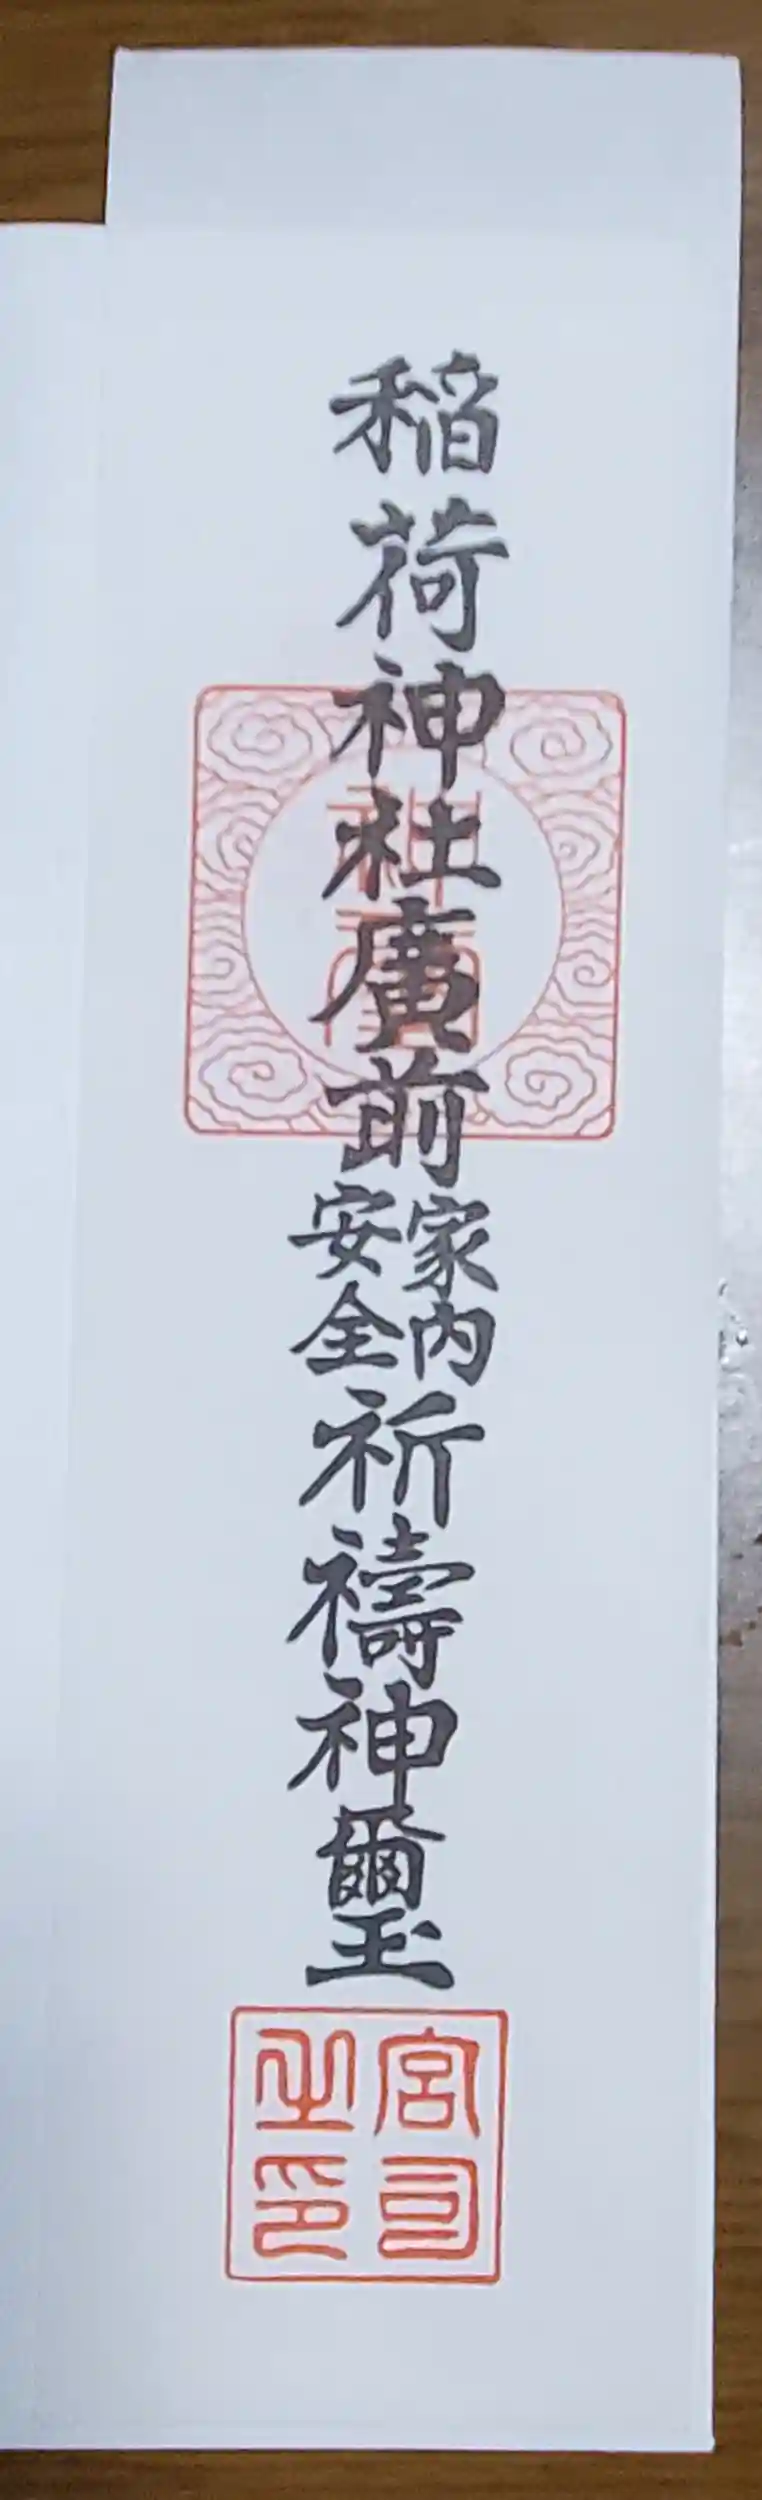 稲荷神社廣前
家内
安全
祈禱神璽
神璽
宮司
之印